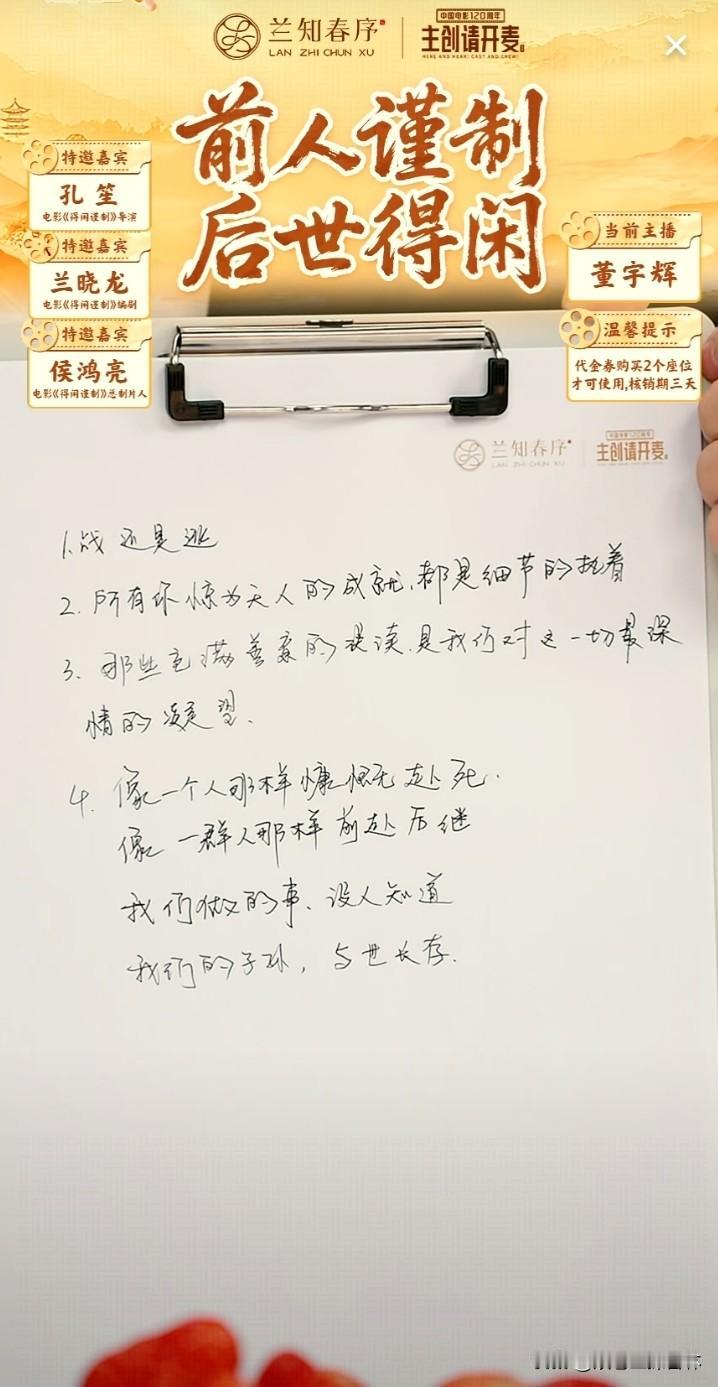 兰知春序
LAN ZHI CHUN XU
中国电影120周年
主创请开麦
HERE AND HEAR! CAST AND CREW!
前人谨制
后世得闲
特邀嘉宾
孔笙
电影《得闲谨制》导演
特邀嘉宾
兰晓龙
电影《得闲谨制》编剧
特邀嘉宾
侯鸿亮
电影《得闲谨制》总制片人
当前主播
董宇辉
温馨提示
代金券购买2个座位
才可使用,核销期三天
兰知春序
LAN ZHI CHUN XU
中国电影120周年
主创请开麦
1.战还是逃
2.所有你惊为天人的成就,都是细节的执着
3.那些充满善意的误读.是我们对这一切最深
情的凝望.
4.像一个人那样慷慨赴死.
像一群人那样前赴后继
我们做的事、没人知道
我们的子孙，与世长存.